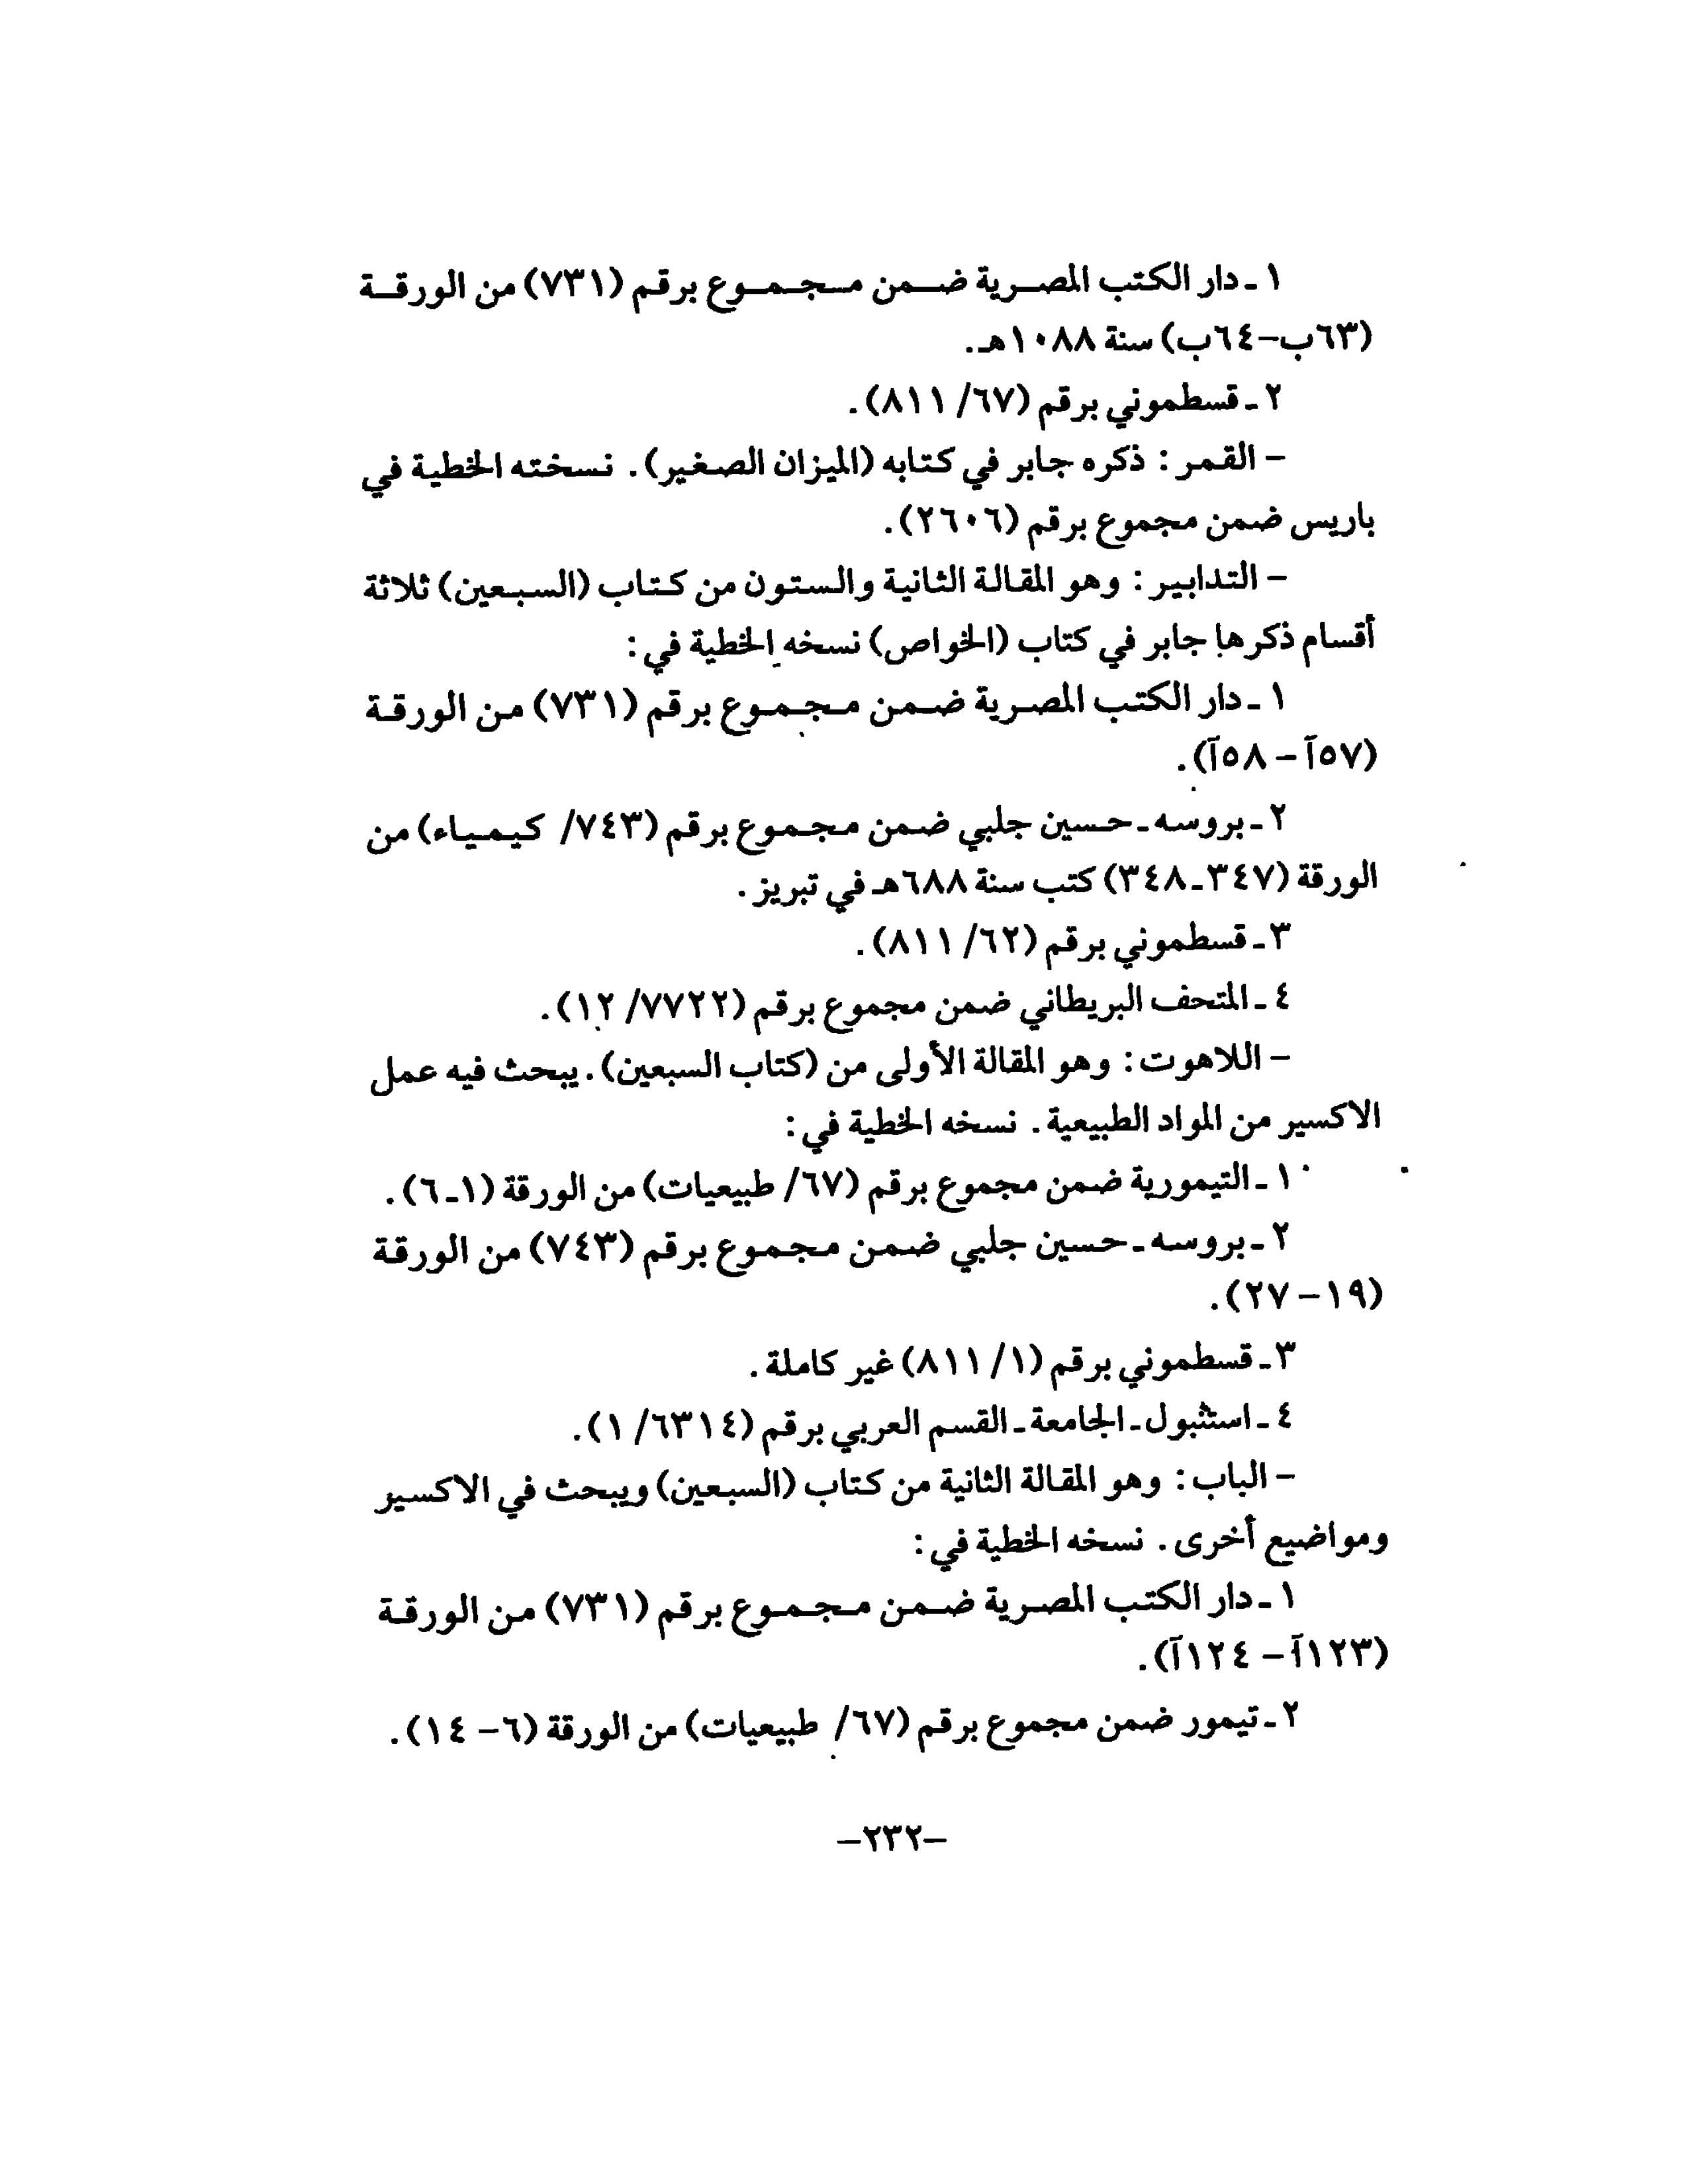 ١ ـ دار الكتب المصرية ضمن مجموع برقم (٧٣١) من الورقة
(٦٣ب–٦٤ب) سنة ١٠٨٨هـ.
٢ ـ قسطموني برقم (٦٧/ ٨١١).
– القمر: ذكره جابر في كتابه (الميزان الصغير). نسخته الخطية في
باريس ضمن مجموع برقم (٢٦٠٦).
– التدابير: وهو المقالة الثانية والستون من كتاب (السبعين) ثلاثة
أقسام ذكرها جابر في كتاب (الخواص) نسخه الخطية في:
١ ـ دار الكتب المصرية ضمن مجموع برقم (٧٣١) من الورقة
(٥٧آ – ٥٨آ).
٢ ـ بروسه ـ حسين جلبي ضمن مجموع برقم (٧٤٣/ كيمياء) من
الورقة (٣٤٧ـ٣٤٨) كتب سنة ٦٨٨هـ في تبريز.
٣ ـ قسطموني برقم (٦٢/ ٨١١).
٤ ـ المتحف البريطاني ضمن مجموع برقم (٧٧٢٢/ ١٢).
– اللاهوت: وهو المقالة الأولى من (كتاب السبعين). يبحث فيه عمل
الاكسير من المواد الطبيعية. نسخه الخطية في:
١ ـ التيمورية ضمن مجموع برقم (٦٧/ طبيعيات) من الورقة (١ـ٦).
٢ ـ بروسه ـ حسين جلبي ضمن مجموع برقم (٧٤٣) من الورقة
(١٩– ٢٧).
٣ ـ قسطموني برقم (١/ ٨١١) غير كاملة.
٤ ـ استنبول ـ الجامعة ـ القسم العربي برقم (٦٣١٤/ ١).
– الباب: وهو المقالة الثانية من كتاب (السبعين) ويبحث في الاكسير
ومواضيع أخرى. نسخه الخطية في:
١ ـ دار الكتب المصرية ضمن مجموع برقم (٧٣١) من الورقة
(١٢٣آ– ١٢٤آ).
٢ ـ تيمور ضمن مجموع برقم (٦٧/ طبيعيات) من الورقة (٦– ١٤).
–٢٣٢–